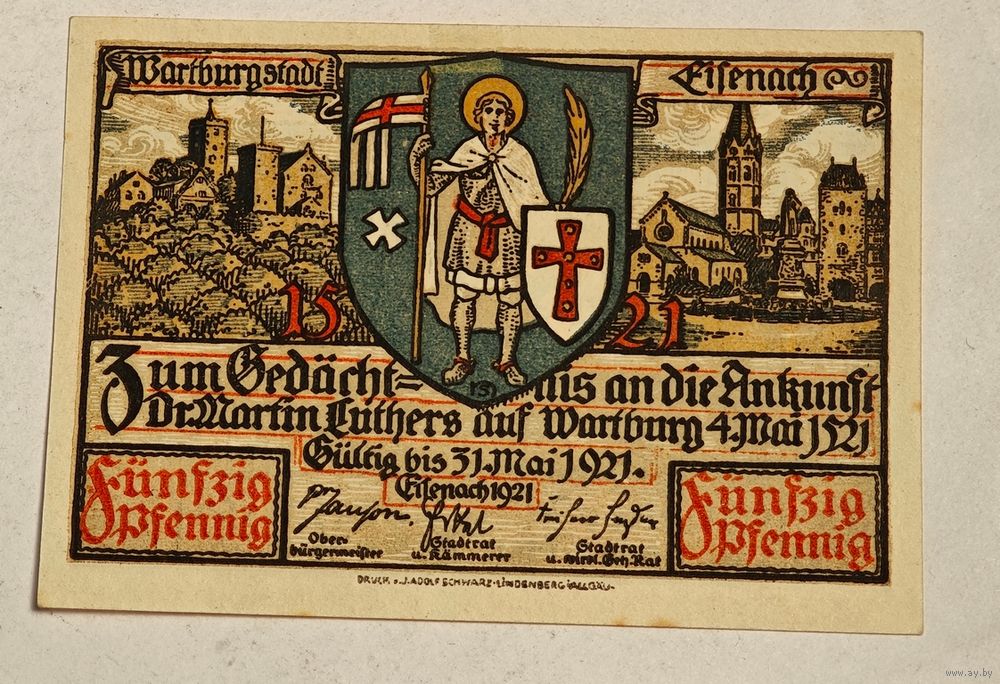 Wartburgstadt
Eisenach
15 21
Zum Gedächt=nis an die Ankunft
Dr. Martin Luthers auf Wartburg 4. Mai 1521
Gültig bis 31. Mai 1921.
Eisenach 1921
Fünfzig
Pfennig
Fünfzig
Pfennig
Ober-
bürgermeister
Stadtrat
u. Kämmerer
Stadtrat
u. wirkl. Geh. Rat
DRUCK v. J. ADOLF SCHWARZ·LINDENBERG i/ALLGÄU
www.ay.by